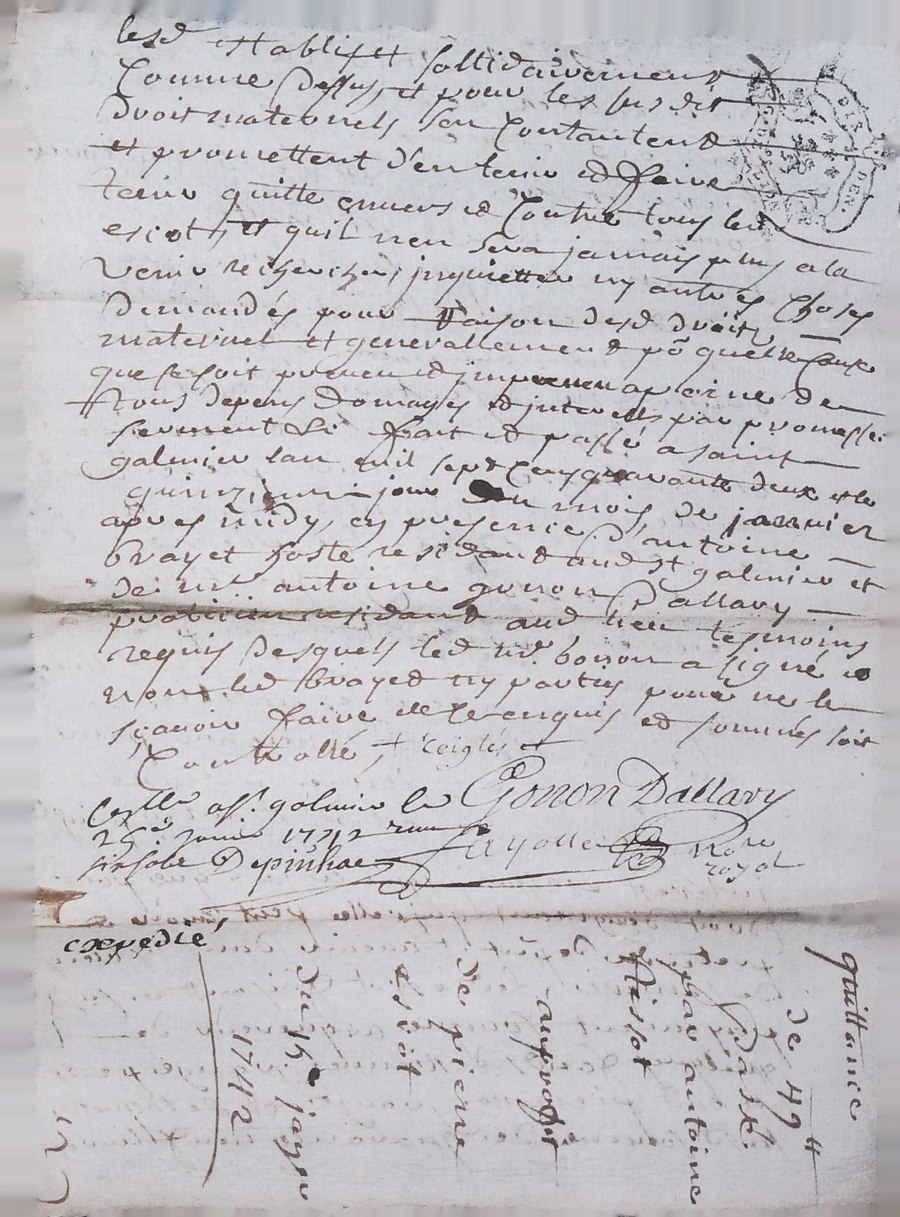 lesd establis et sollidairement
Comme dessus et pour les susdit
droit maternels sen Contantent
et promettent d'en tenir et faire
tenir quitte envers et Contre tous led
escot, et quil nen sera jamais plus a la
venir recherché, inquietter ny autres Choses
demandés pour raison desd droits
maternel et generallement po quelle cause
que se soit a peine de
tous depens domages et interests par promesse
serment fait et passé a saint
galmier lan mil sept Cens quarante deux et le
quinzieme jour du mois de janvier
apres midy, en presence d'antoine
brayet hoste residant aud st galmier et
de mr antoine gonon dallary
praticien residant aud lieu tesmoins
requis desquels led mr gonon a signé et
non led brayet ny partis pour ne le
sçavoir faire de ce enquis et sommés soit
Controllé,
Gonon Dallary
Conllé a st galmier le
25e janvier 1742
Depinhac
Fayolle Nore
royal
expedié
quittance
de 49 tt
par antoine
au profit
de pierre
escot
du 15 janv
1742